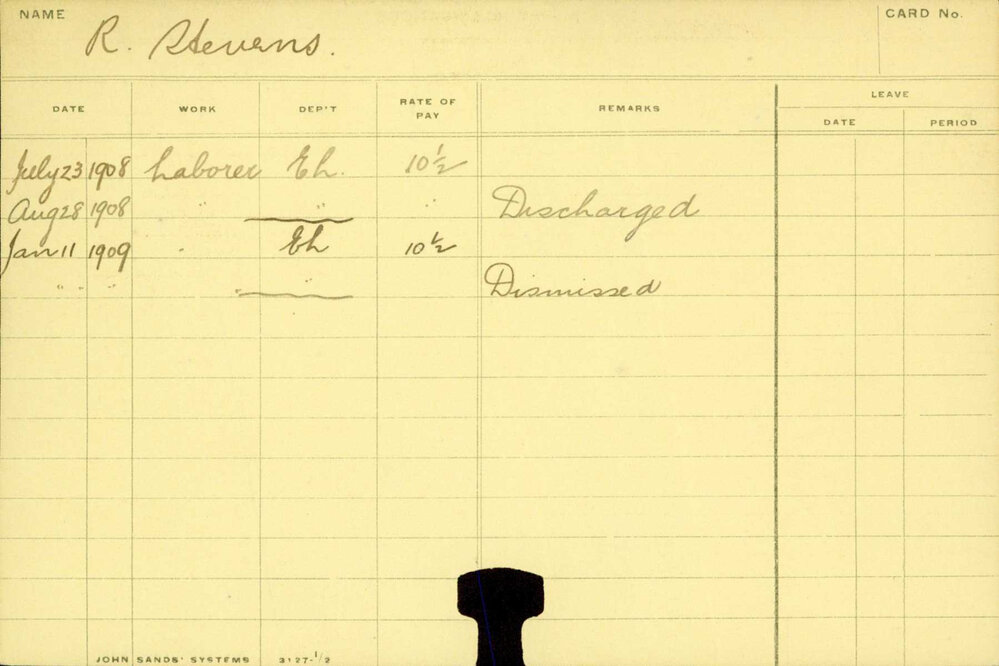 NAME R. Stevens. CARD No.
DATE WORK DEP'T RATE OF PAY REMARKS LEAVE
DATE PERIOD
July 23 1908 Laborer Eh. 10½
Aug 28 1908 " " " Discharged
Jan 11 1909 " Eh 10½
" " " " " Dismissed
JOHN SANDS' SYSTEMS 3127-1/2